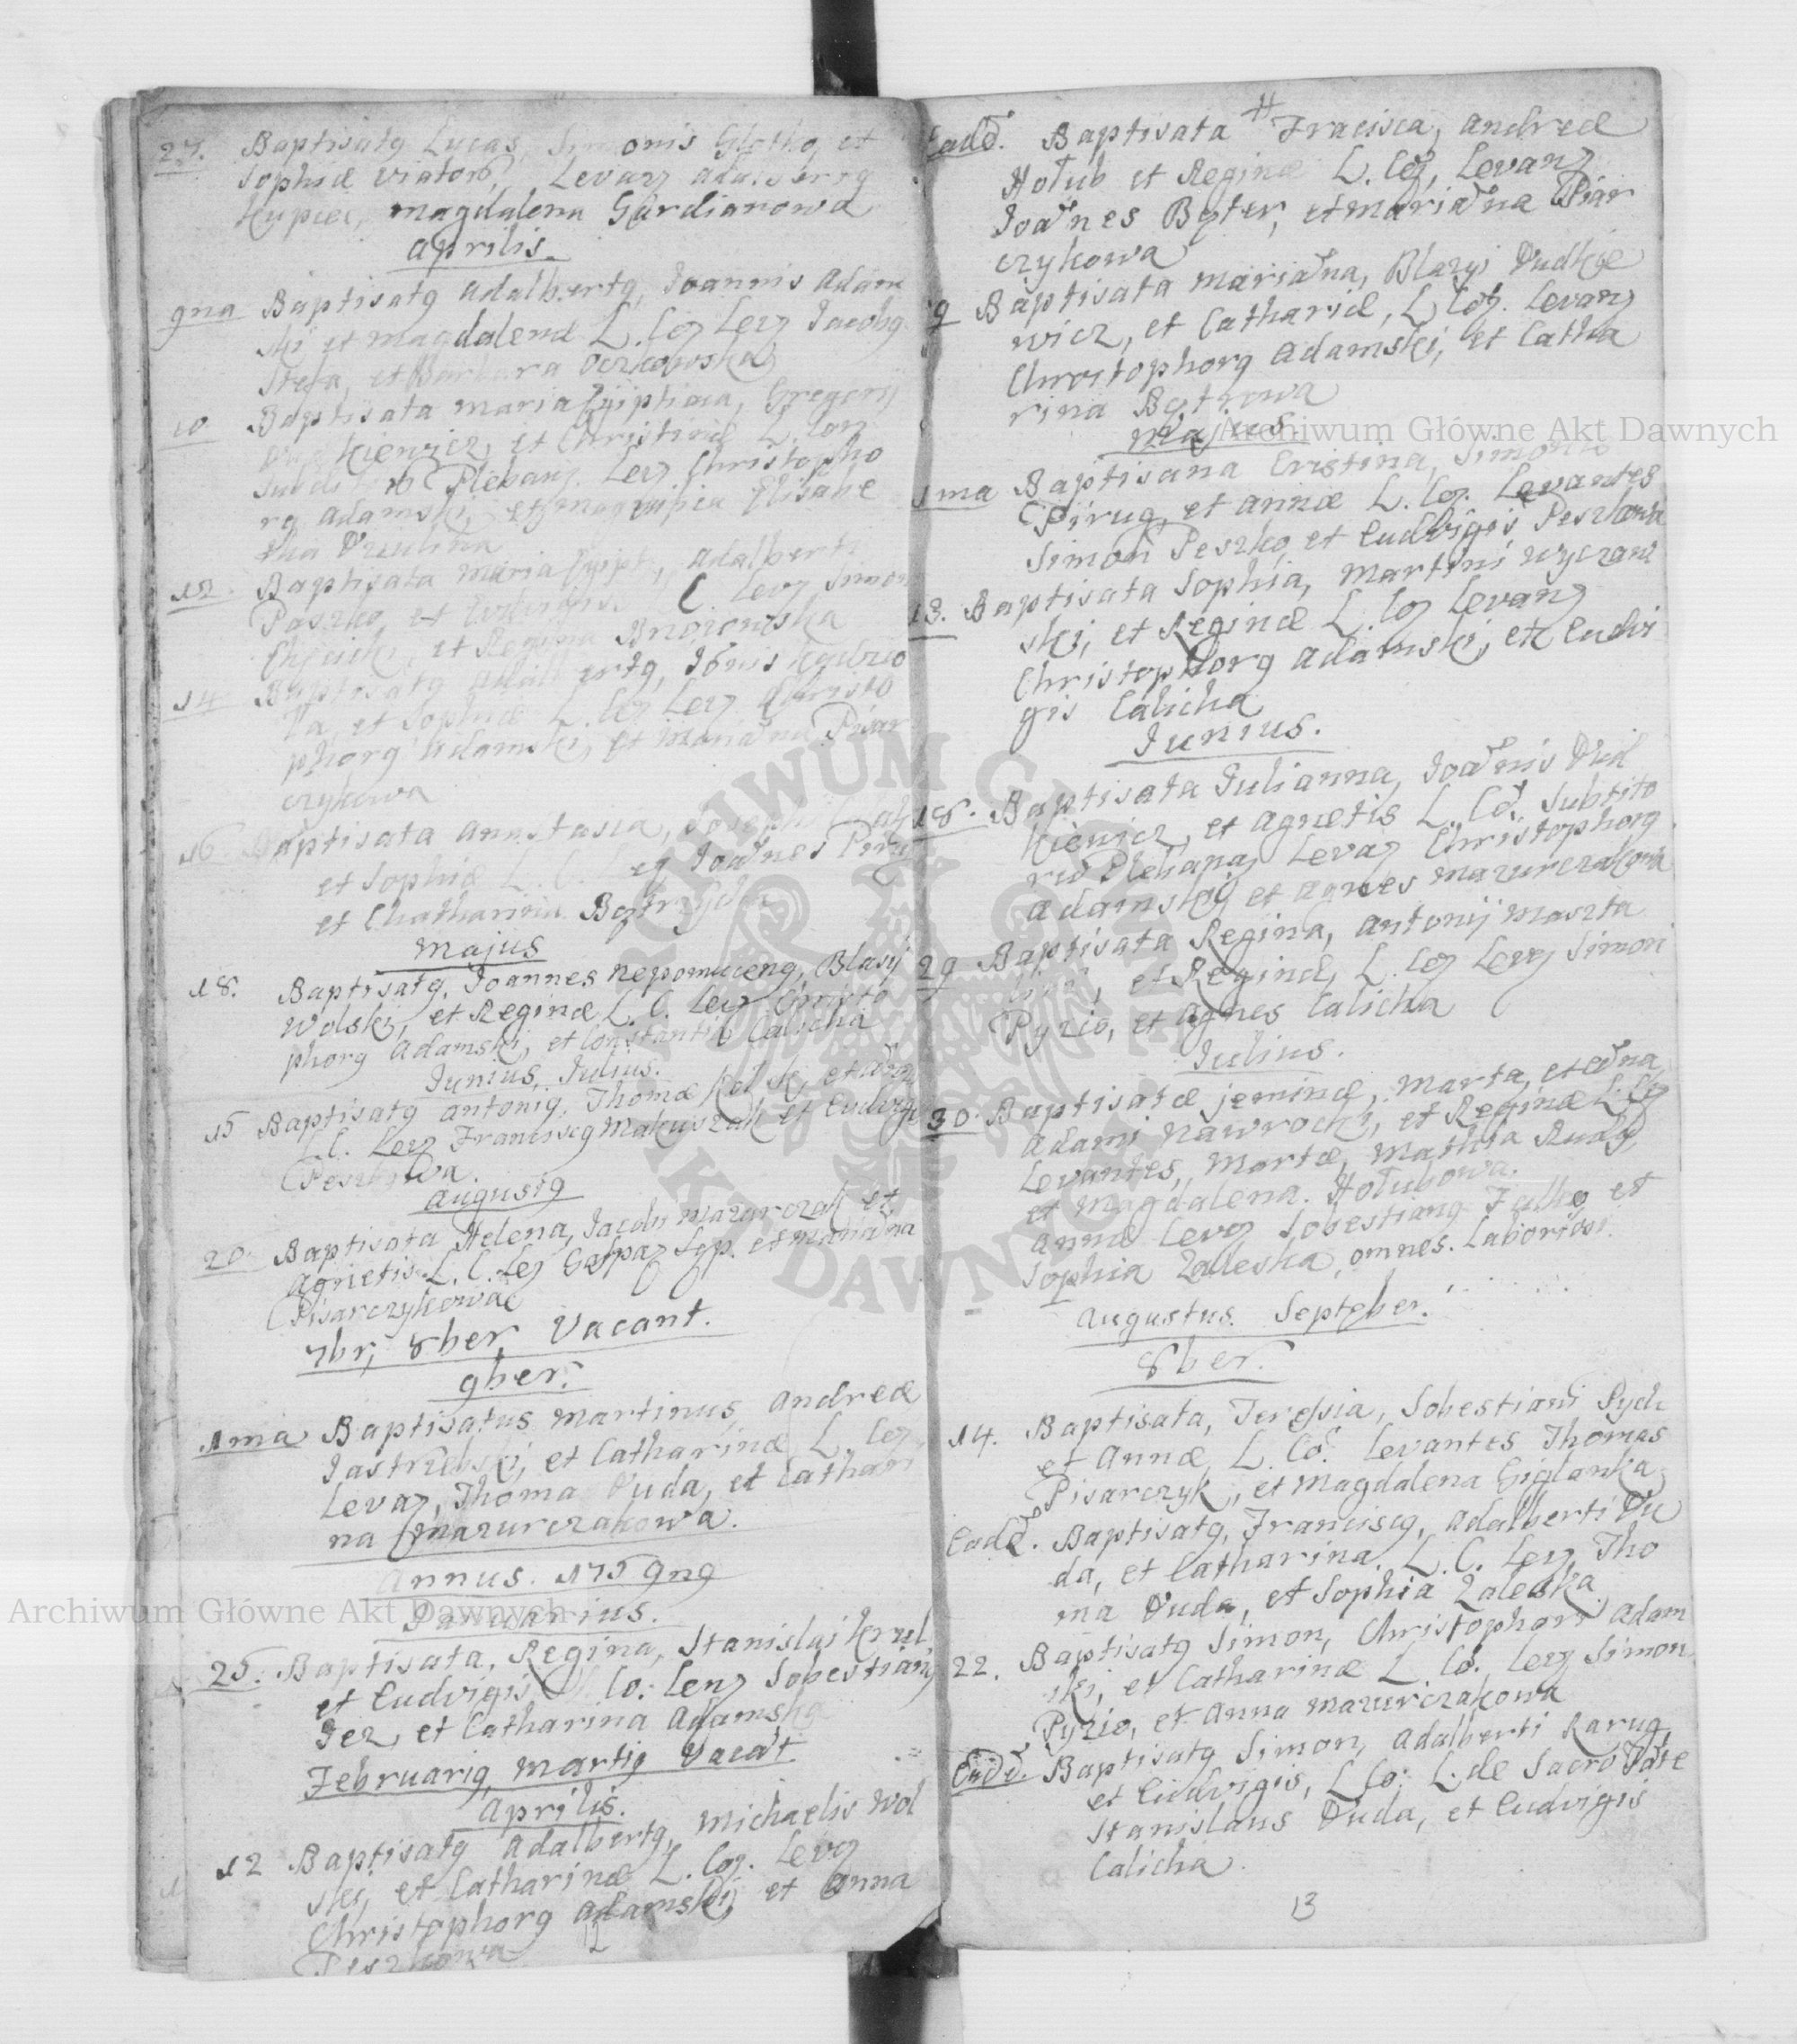 27. Baptisatg Lucas, Simonis Glotko, et
Sophiæ viatorū, Levaɣ Adalbertg
Kupiec, Magdalena Gardianowa
Aprilis.
9na Baptisatg Adalbertg, Joannis Adam
ski et Magdalenæ L. Coɣ Leɣ Jacobg
et Barbara
10 Baptisata Maria Egiiptiaca, Gregorij
kiewicz, et Christinæ L. Con
Subditorū Plebanɣ. Leɣ. Christopho
rg Adamski, et Elisabe
tha
12. Baptisata Maria Egipt, Adalberti
Paszko, et Ludvigis. L C Leɣ Simon
et Regina
14 Baptisatg Adalbertg, Jōnis
la, et Sophiæ L. Coɣ Leɣ Christo
phorg Adamski, et Mariāna Pisar
czykowa
16. Baptisata Annstasia, Josephi
et Sophiæ L. C. Leɣ Joānes
et Chatharina
Majus
18. Baptisatg, Joannes Nepomuceng, Blasij
Wolski, et Reginæ L. C. Leɣ Christo
phorg Adamski, et Constantia Calicha
Junius, Julius.
15 Baptisatg Antonig, Thomæ et Añæ
L.C. Leɣ Franciscg Makuszak et Ludvigis
Peszkowa.
Augustg
20. Baptisata Helena, Jacobi Mazurczak et
Agnetis L. C. Leɣ Gaspaɣ et Mariāna
Pisarczykowae
7br, 8ber, Vacant.
9ber.
1ma Baptisatus Martinus, Andreæ
Jastrzebski, et Catharinæ L. Coɣ
Levaɣ, Thoma Duda, et Cathari
na Mazurczakowa.
Annus. 1759ng
Januarius.
25. Baptisata, Regina, Stanislai Krul,
et Ludvigis, Co: Lenɣ Sobestiang
Jez, et Catharina Adamska
Februarig, Martig Vacāt
Aprilis.
12 Baptisatg Adalbertg, Michaelis Wol
ski, et Catharinæ L. Coɣ. Levɣ
Christophorg Adamski, et Anna
Peszkowa
12
Eadē. Baptisata Fracisca, Andreæ
Hołub et Reginæ L. Coɣ, Levanɣ
Joānes Byter, et Mariāna Pisar
czykowa
Baptisata Mariāna, Blazyi Dudkie
wicz, et Cathariæ, L Coɣ. Levanɣ
Christophorg Adamski, et Catha
rina
Majus.
1ma Baptisana Cristina, Simonis
Pirug, et Annæ L. Coɣ. Levantes
Simon Peszko, et Ludvigis, Peszkowa
13. Baptisata Sophia, Martini Wyczaw
ski, et Reginæ L. Coɣ Levanɣ
Christophorg Adamski, et Ludvi
gis Calicha
Junius.
18. Baptisata Julianna, Joānis Dud
kiewicz, et Agnetis L. Cō, Subtito
rū Plebanaɣ Levaɣ Christophorg
Adamski, et Agnes Mazurczakowa
29 Baptisata Regina, Antonij Maszta
et Reginæ, L. Coɣ Levɣ Simon
Pyzio, et Agnes Calicha
Julius.
30. Baptisatæ jeminæ, Marta, et Āna,
Adami Nawrocki, et Reginæ L. Coɣ
Levantes, Martæ, Mathia Rudy,
et Magdalena. Hołubowa.
Annæ Levɣ Sobestiang Falko, et
Sophia Zaleska, omnes. Laboriosi.
Augustus. September.
8ber.
14. Baptisata, Teressia, Sobestiani Pych
et Annæ, L. Cō. Levantes Thomas
Pisarczyk, et Magdalena Giglanka
Eadē. Baptisatg, Franciscg, Adalberti Du
da, et Catharina. L. C. Leɣ, Tho
ma Duda, et Sophia Zaleska.
22. Baptisatg Simon, Christophori Adam
ski, et Catharinæ L Co. Leɣ Simon
Pyzio, et Anna Mazurczakowa
Eadē. Baptisatg Simon, Adalberti Karug,
et Ludvigis, L Co: L. de Sacro Fōte
Stanislaus Duda, et Ludvigis
Calicha.
13
Archiwum Główne Akt Dawnych
Archiwum Główne Akt Dawnych
ARCHIWUM GŁÓWNE AKT DAWNYCH